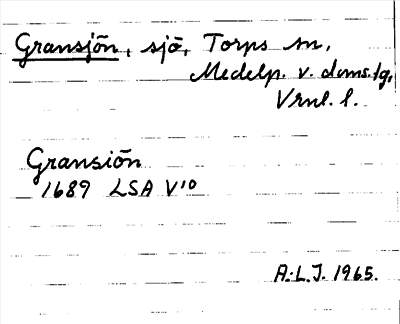 Gransjön, sjö, Torps sn,
Medelp. v. doms.tg,
Vrnl. l.
Gransiön
1689 LSA V10
A.L.J. 1965.